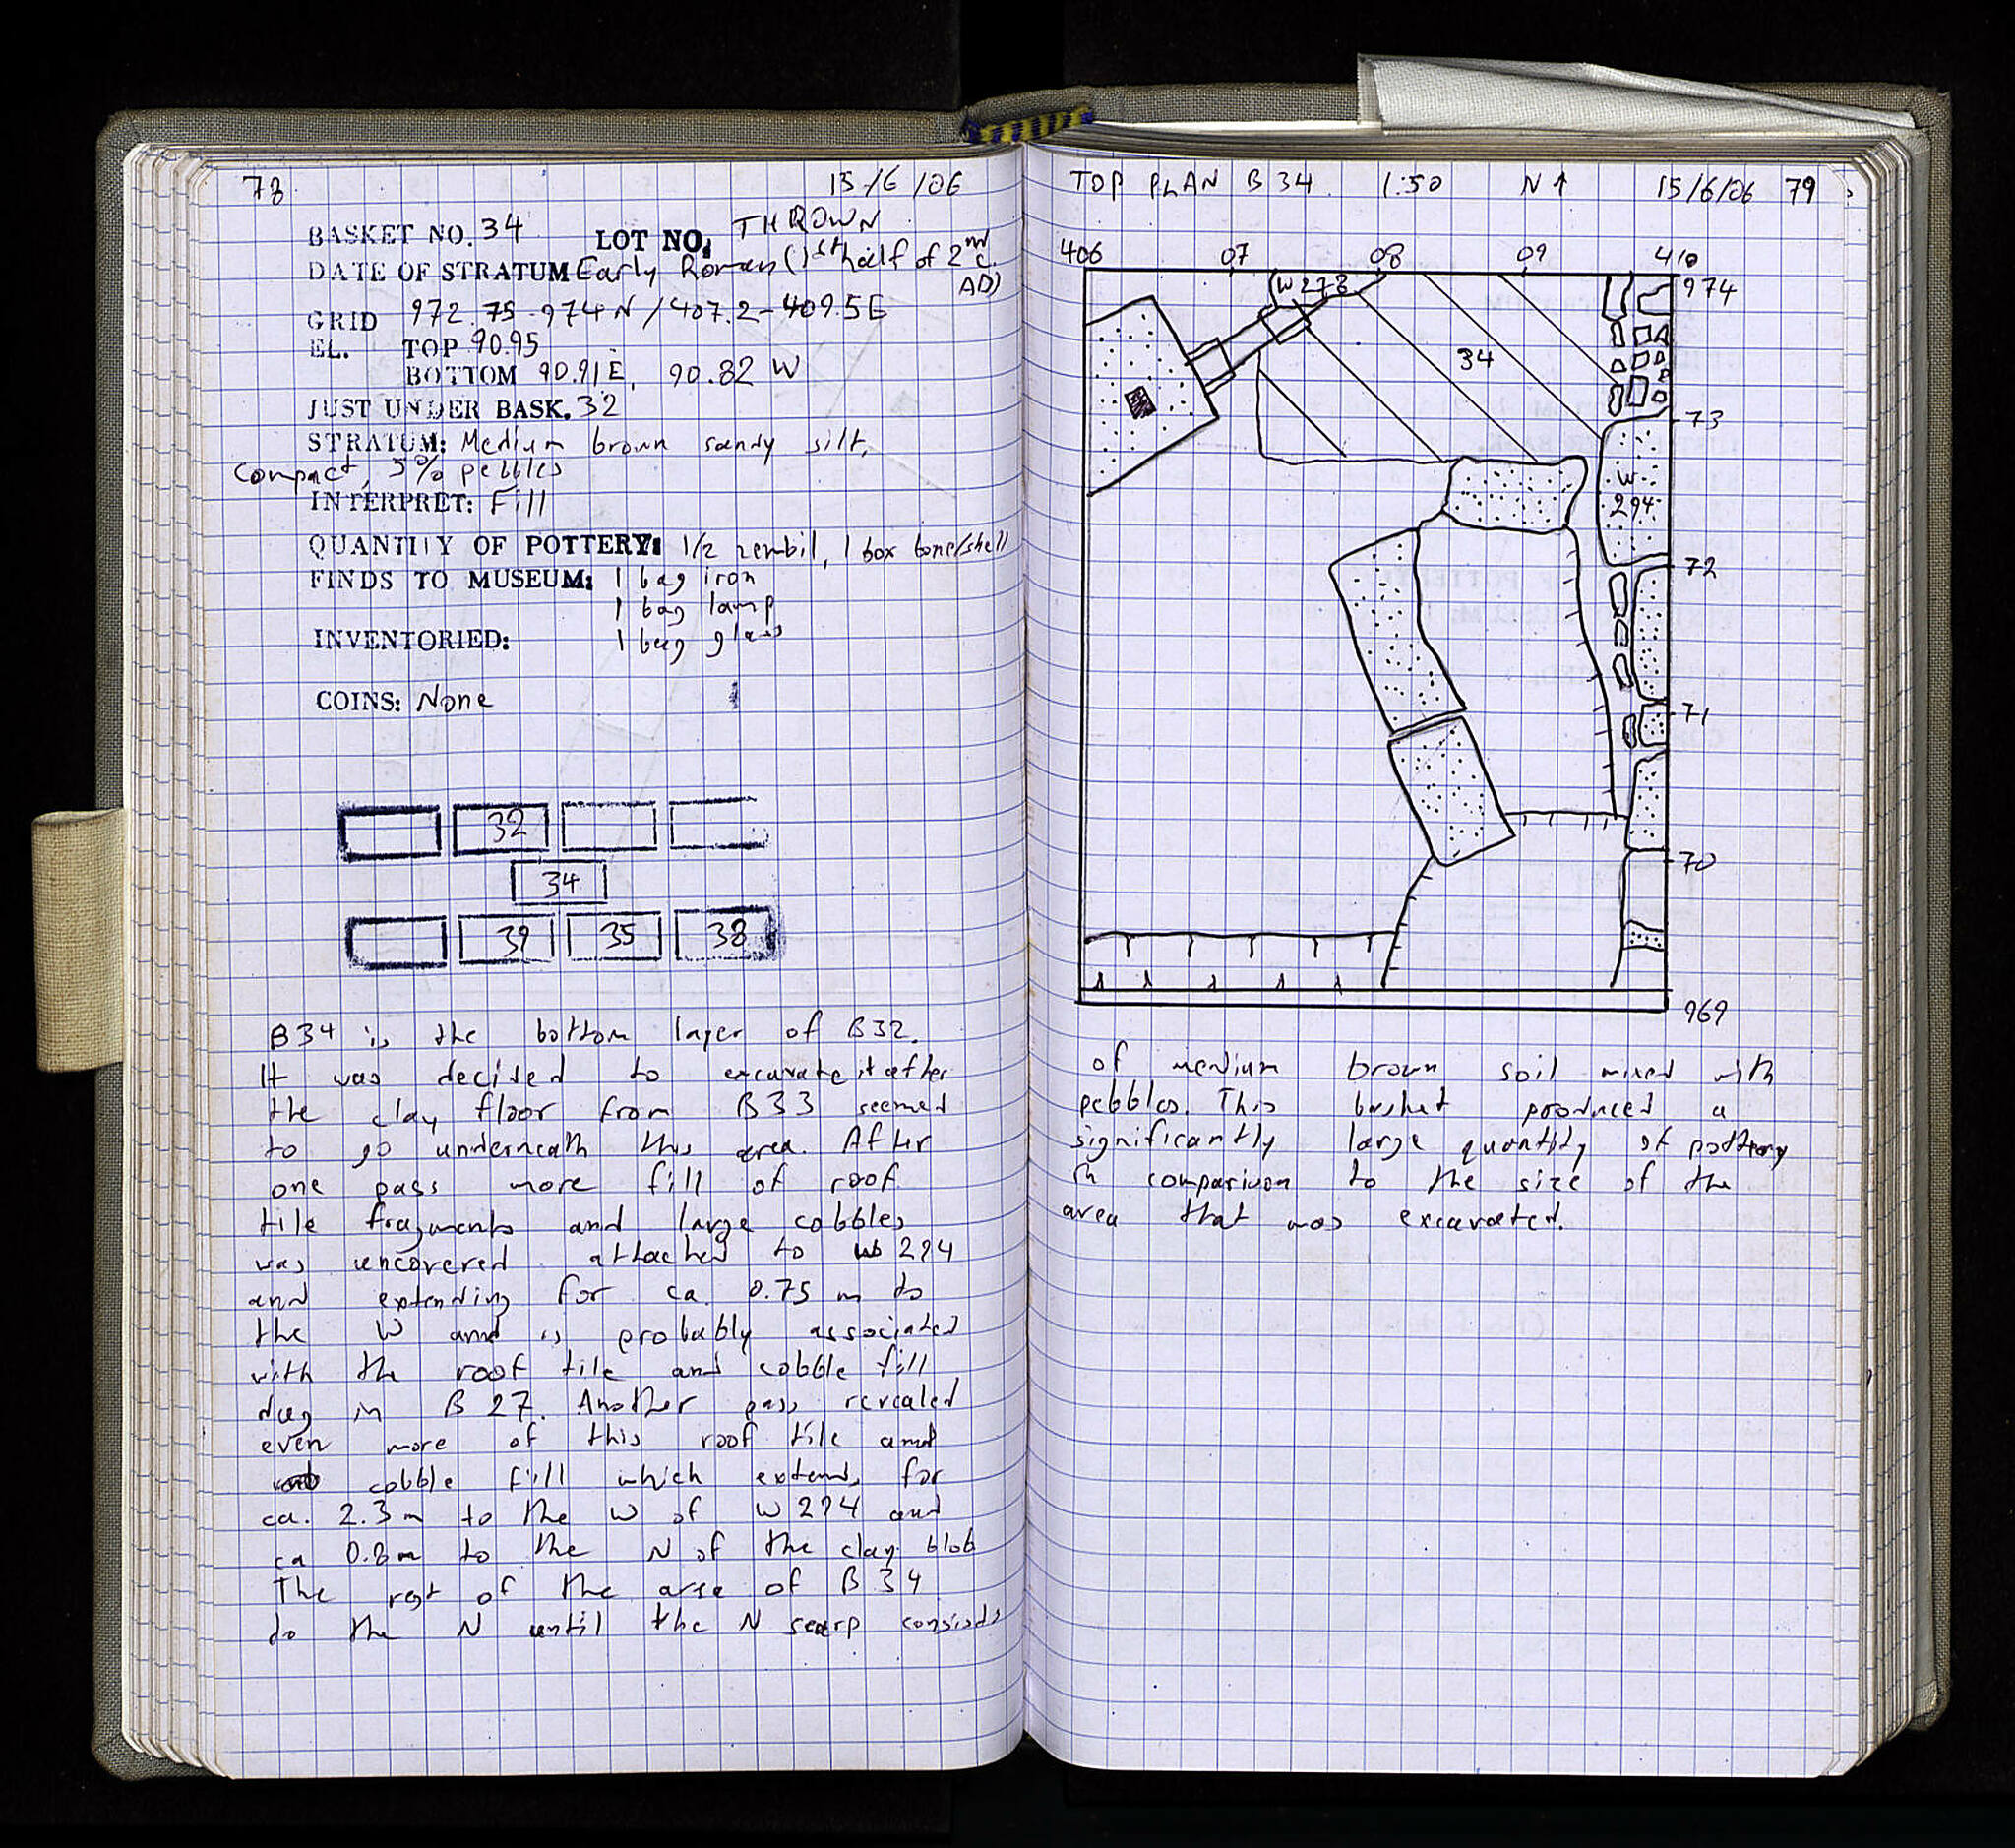 78 15/6/06
BASKET NO. 34 LOT NO. THROWN
DATE OF STRATUM Early Roman (1st half of 2nd c. AD)
GRID 972.75-974N/407.2-409.5E
EL. TOP 90.95
BOTTOM 90.91E, 90.82 W
JUST UNDER BASK. 32
STRATUM: Medium brown sandy silt,
compact, 5% pebbles
INTERPRET: Fill
QUANTITY OF POTTERY: 1/2 zembil, 1 box bone/shell
FINDS TO MUSEUM: 1 bag iron
1 bag lamp
INVENTORIED: 1 bag glass
COINS: None
32
34
39 35 38
B34 is the bottom layer of B32.
It was decided to excavate it after
the clay floor from B33 seemed
to go underneath this area. After
one pass more fill of roof
tile fragments and large cobbles
was uncovered attached to W 294
and extending for ca. 0.75 m to
the W and is probably associated
with the roof tile and cobble fill
dug in B 27. Another pass revealed
even more of this roof tile and
cobble fill which extends for
ca. 2.3 m to the W of W 294 and
ca 0.8m to the N of the clay blob
The rest of the area of B 34
to the N until the N scarp consists
TOP PLAN B 34 1:50 N↑ 15/6/06 79
406 07 08 09 410
W 278
974
34
73
W
294
72
71
70
969
of medium brown soil mixed with
pebbles. This basket produced a
significantly large quantity of pottery
in comparison to the size of the
area that was excavated.